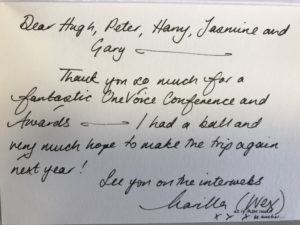 Dear Hugh, Peter, Harry, Jasmine and
Gary
Thank you so much for a
fantastic OneVoice Conference and
Awards — I had a ball and
very much hope to make the trip again
next year!
See you on the interwebs
(Wex)
x x x